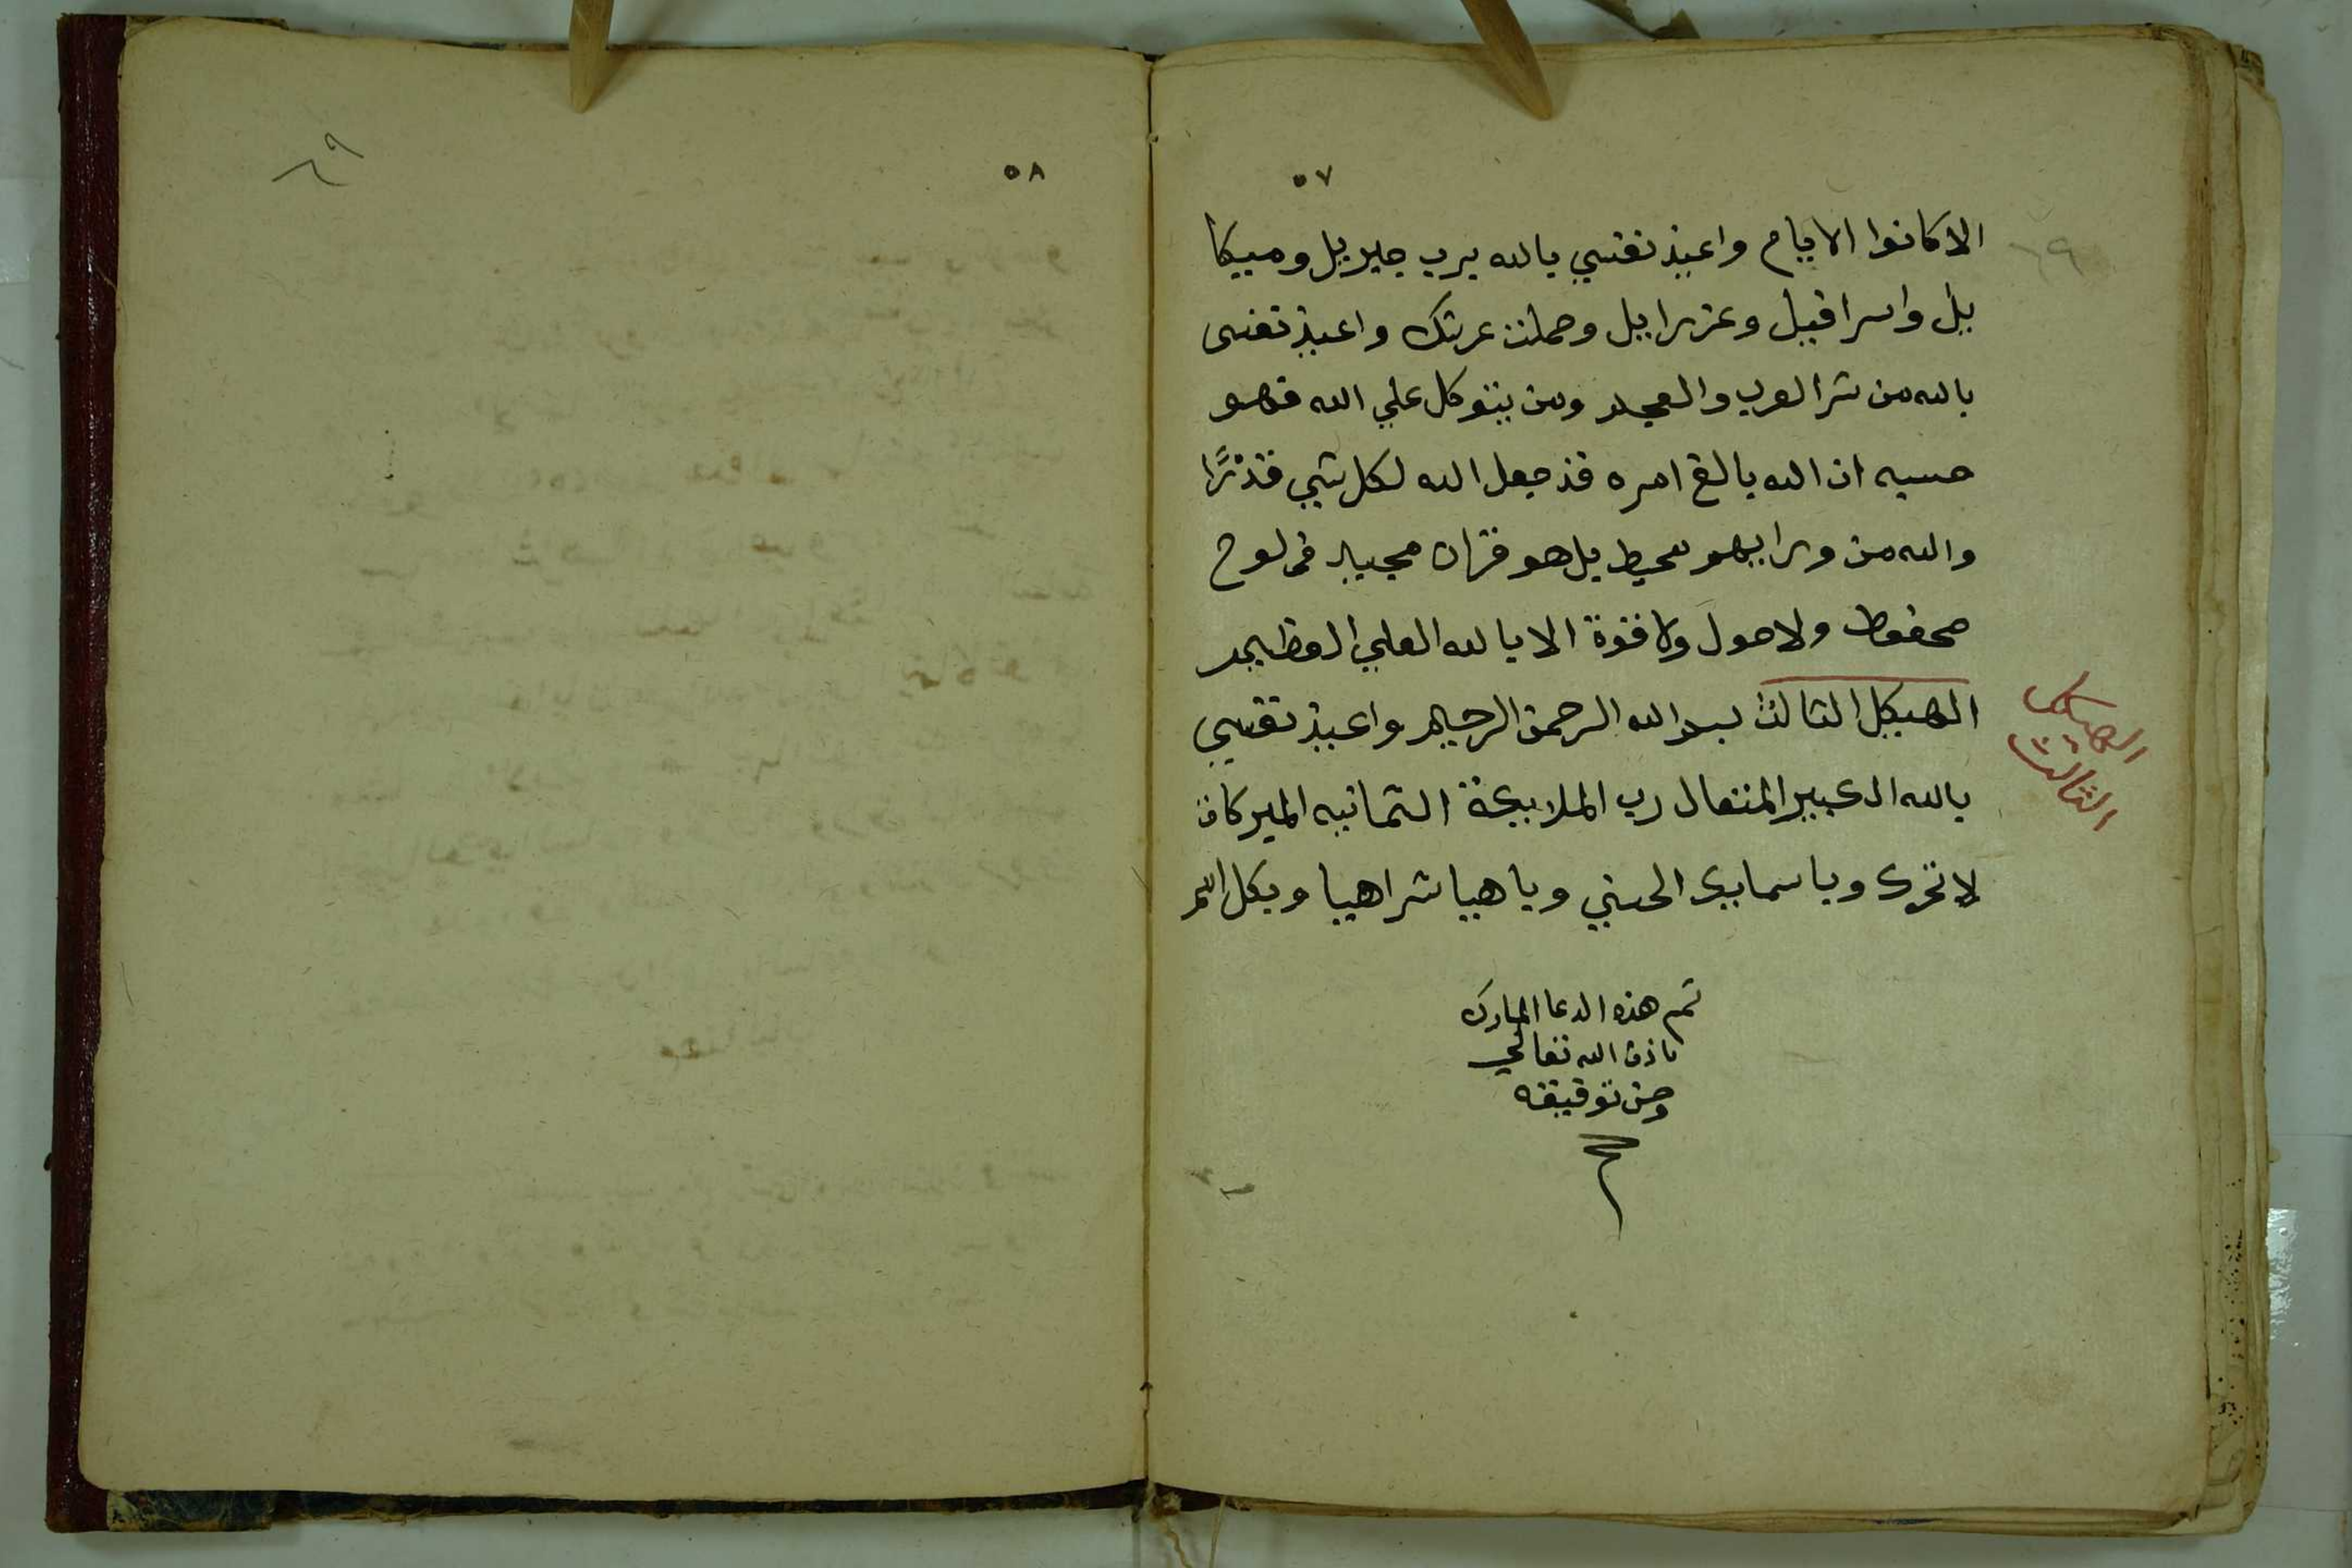 ٥٧
الا كانوا الا ييام واعيذ نفسي بالله برب جبريل وميكا
ييل واسرافيل وعزراييل وحملت عرشك واعيذ نفسى
بالله من شر العرب والعجم ومن يتوكل علي الله فهو
حسبه ان الله بالغ امره قد جعل الله لكل شي قدرًا
والله من ورايهم محيط بل هو قران مجيد فى لوح
محفوظ ولا حول ولا قوة الا بالله العلي العظيم
الهيكل الثالث بسم الله الرحمن الرحيم واعيذ نفسي
بالله الكبير المتعال رب الملايكة الثمانيه
لا تحرك وباسمايك الحسني وباهيا شراهيا وبكل اسم
الهيكل
الثالث
تم هذه الدعا المبارك
باذن الله تعالي
وحسن توفيقه
٥٨
٦٩